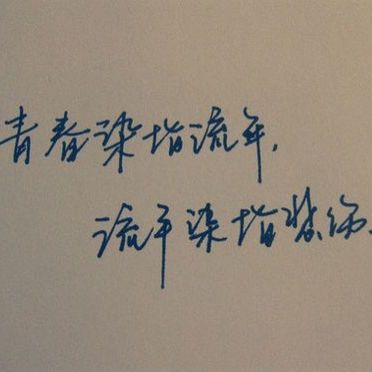 青春染指流年,
流年染指悲伤.